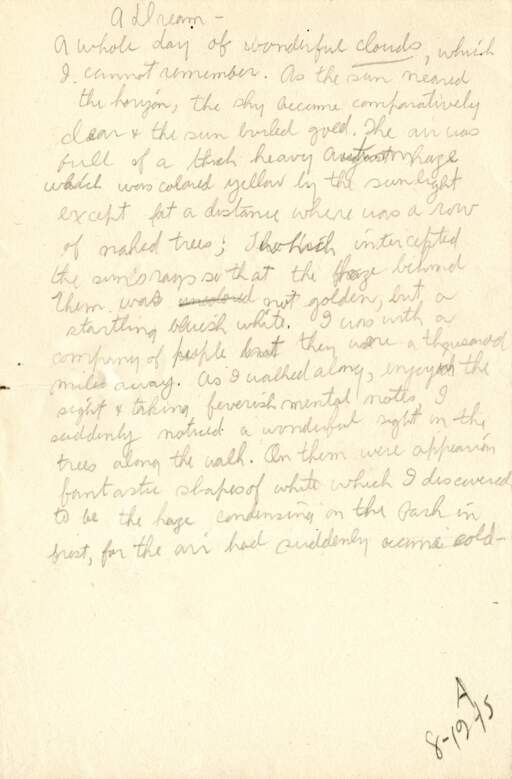 A Dream -
A whole day of wonderful clouds, which
I cannot remember. As the sun neared
the horizon, the sky became comparatively
clear & the sun boiled gold. The air was
full of a thick heavy August haze
which was colored yellow by the sunlight
except at a distance where was a row
of naked trees; which intercepted
the sun's rays so that the haze behind
them was uncolored not golden, but a
startling bluish white. I was with a
company of people but they were a thousand
miles away. As I walked along, enjoying the
sight & taking feverish mental notes, I
suddenly noticed a wonderful sight in the
trees along the walk. On them were appearing
fantastic shapes of white which I discovered
to be the haze condensing on the bark in
frost, for the air had suddenly became cold -
A
8-19-15